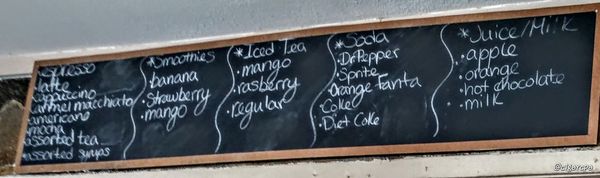 espresso
latte
cappuccino
caramel macchiato
americano
mocha
assorted tea
assorted syrups
*Smoothies
banana
strawberry
mango
*Iced Tea
• mango
• rasberry
• regular
*Soda
• Dr Pepper
• Sprite
Orange Fanta
Coke
• Diet Coke
*Juice/Milk
• apple
• orange
• hot chocolate
• milk